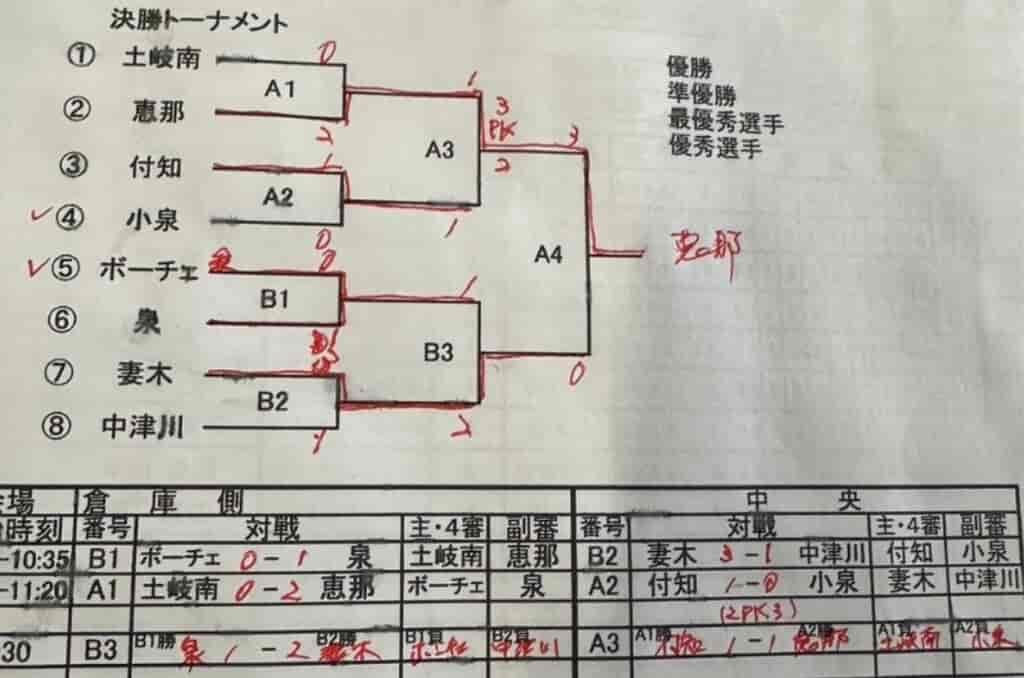 決勝トーナメント
① 土岐南 0
A1
② 恵那 2
1 3 PK 2 3
A3
③ 付知 1
A2
④ 小泉 0
1
⑤ ボーチェ 0
B1
⑥ 泉
1
A4
恵那
B3
⑦ 妻木
B2
⑧ 中津川 1
2
0
優勝
準優勝
最優秀選手
優秀選手
会場 倉庫側 中央
時刻 番号 対戦 主・4審 副審 番号 対戦 主・4審 副審
-10:35 B1 ボーチェ 0 - 1 泉 土岐南 恵那 B2 妻木 3 - 1 中津川 付知 小泉
-11:20 A1 土岐南 0 - 2 恵那 ボーチェ 泉 A2 付知 1 - 0 小泉 妻木 中津川
(2PK3)
30 B3 B1勝 泉 1 - 2 B2勝 妻木 B1負 B2負 中津川 A3 A1勝 付知 1 - 1 A2勝 恵那 A1負 土岐南 A2負 小泉